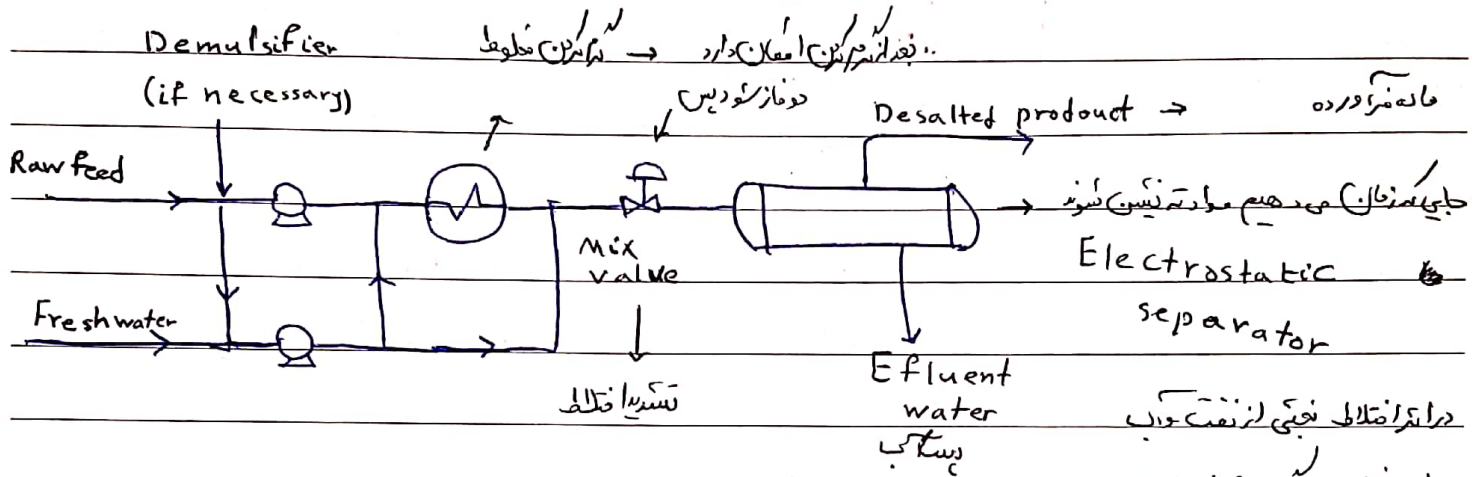 Demulsifier
(if necessary)
گرم کردن مخلوط → بعد از گرم کردن امکان دارد
دو فاز شود پس
Desalted prodouct →
ماده فرآورده
Raw feed
Mix
valve
جایی که زمان می دهیم مواد ته نشین شوند
Electrostatic
separator
Freshwater
تشدید اختلاط
Efluent
water
پساب
در اثر اختلاط بخشی از نفت و آب